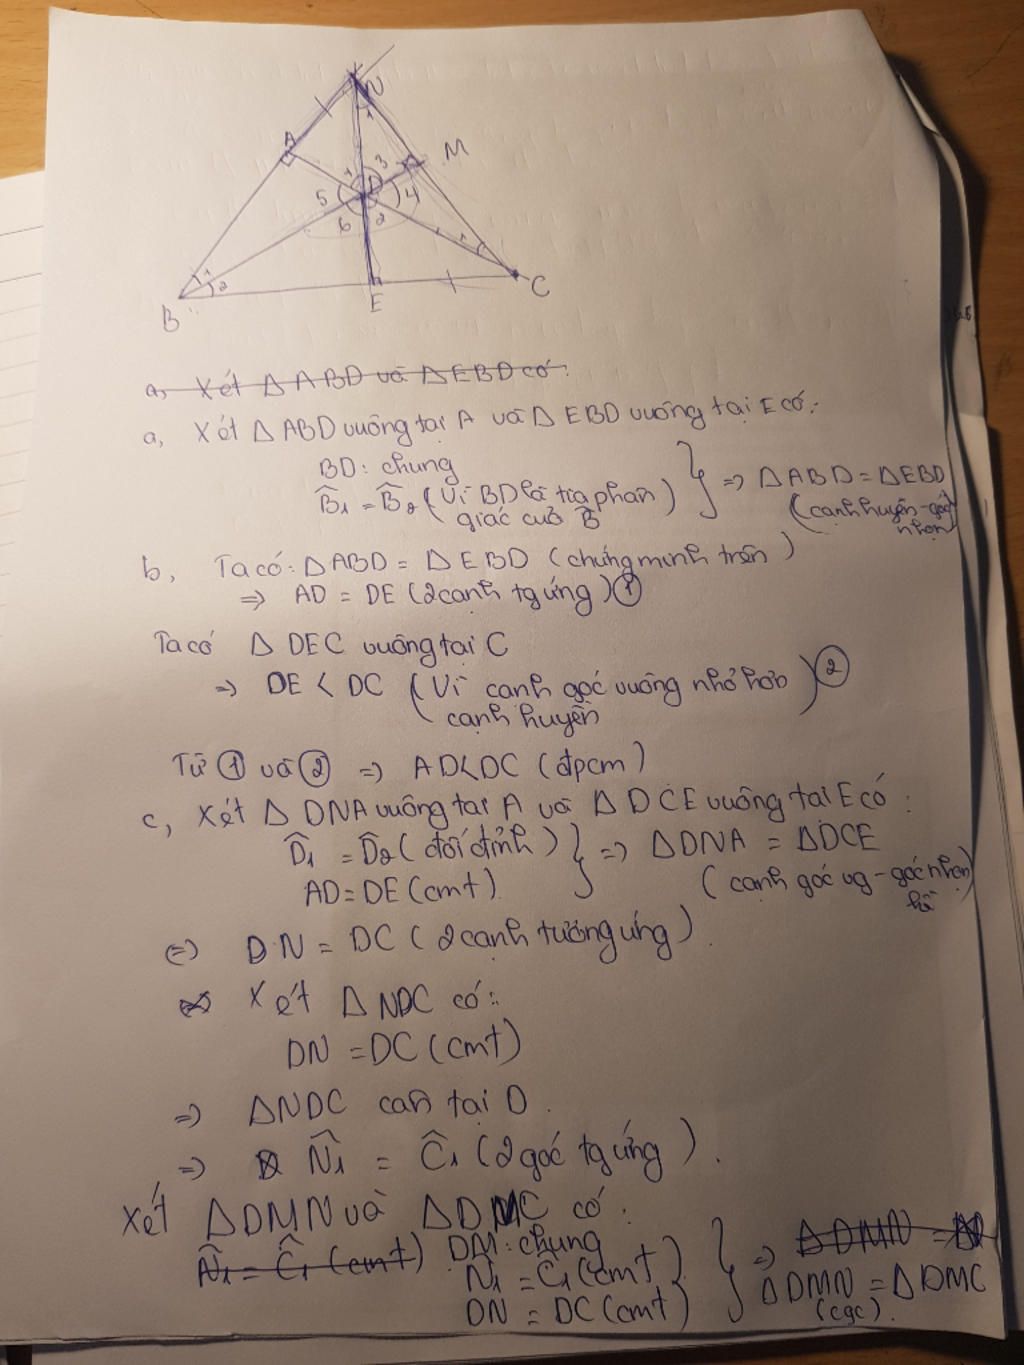 N
A
M
1
3
1
5
D
4
6
2
1
1
2
B
E
C
a, Xét ΔABD và ΔEBD có:
a, Xét ΔABD vuông tại A và Δ EBD vuông tại E có:
BD: chung
B̂1 = B̂2 (Vì BD là tia phân giác cuả B̂) } => ΔABD = ΔEBD (cạnh huyền - góc nhọn)
b, Ta có: ΔABD = ΔEBD (chứng minh trên)
=> AD = DE (2 cạnh tg ứng) ①
Ta có Δ DEC vuông tại C
=> DE < DC (Vì cạnh góc vuông nhỏ hơn cạnh huyền) ②
Từ ① và ② => AD<DC (đpcm)
c, Xét Δ DNA vuông tại A và Δ DCE vuông tại E có:
D̂1 = D̂2 (đối đỉnh)
AD = DE (cmt) } => ΔDNA = ΔDCE
(cạnh góc vg - góc nhọn
=> DN = DC (2 cạnh tương ứng).
Xét Δ NDC có:
DN = DC (cmt)
=> ΔNDC cân tại D.
=> N̂1 = Ĉ1 (2 góc tg ứng).
Xét ΔDMN và ΔDMC có:
N̂1 = Ĉ1 (cmt) DM: chung
N̂1 = Ĉ1 (cmt)
DN = DC (cmt) } => ΔDMN = ΔDMC
(cgc).